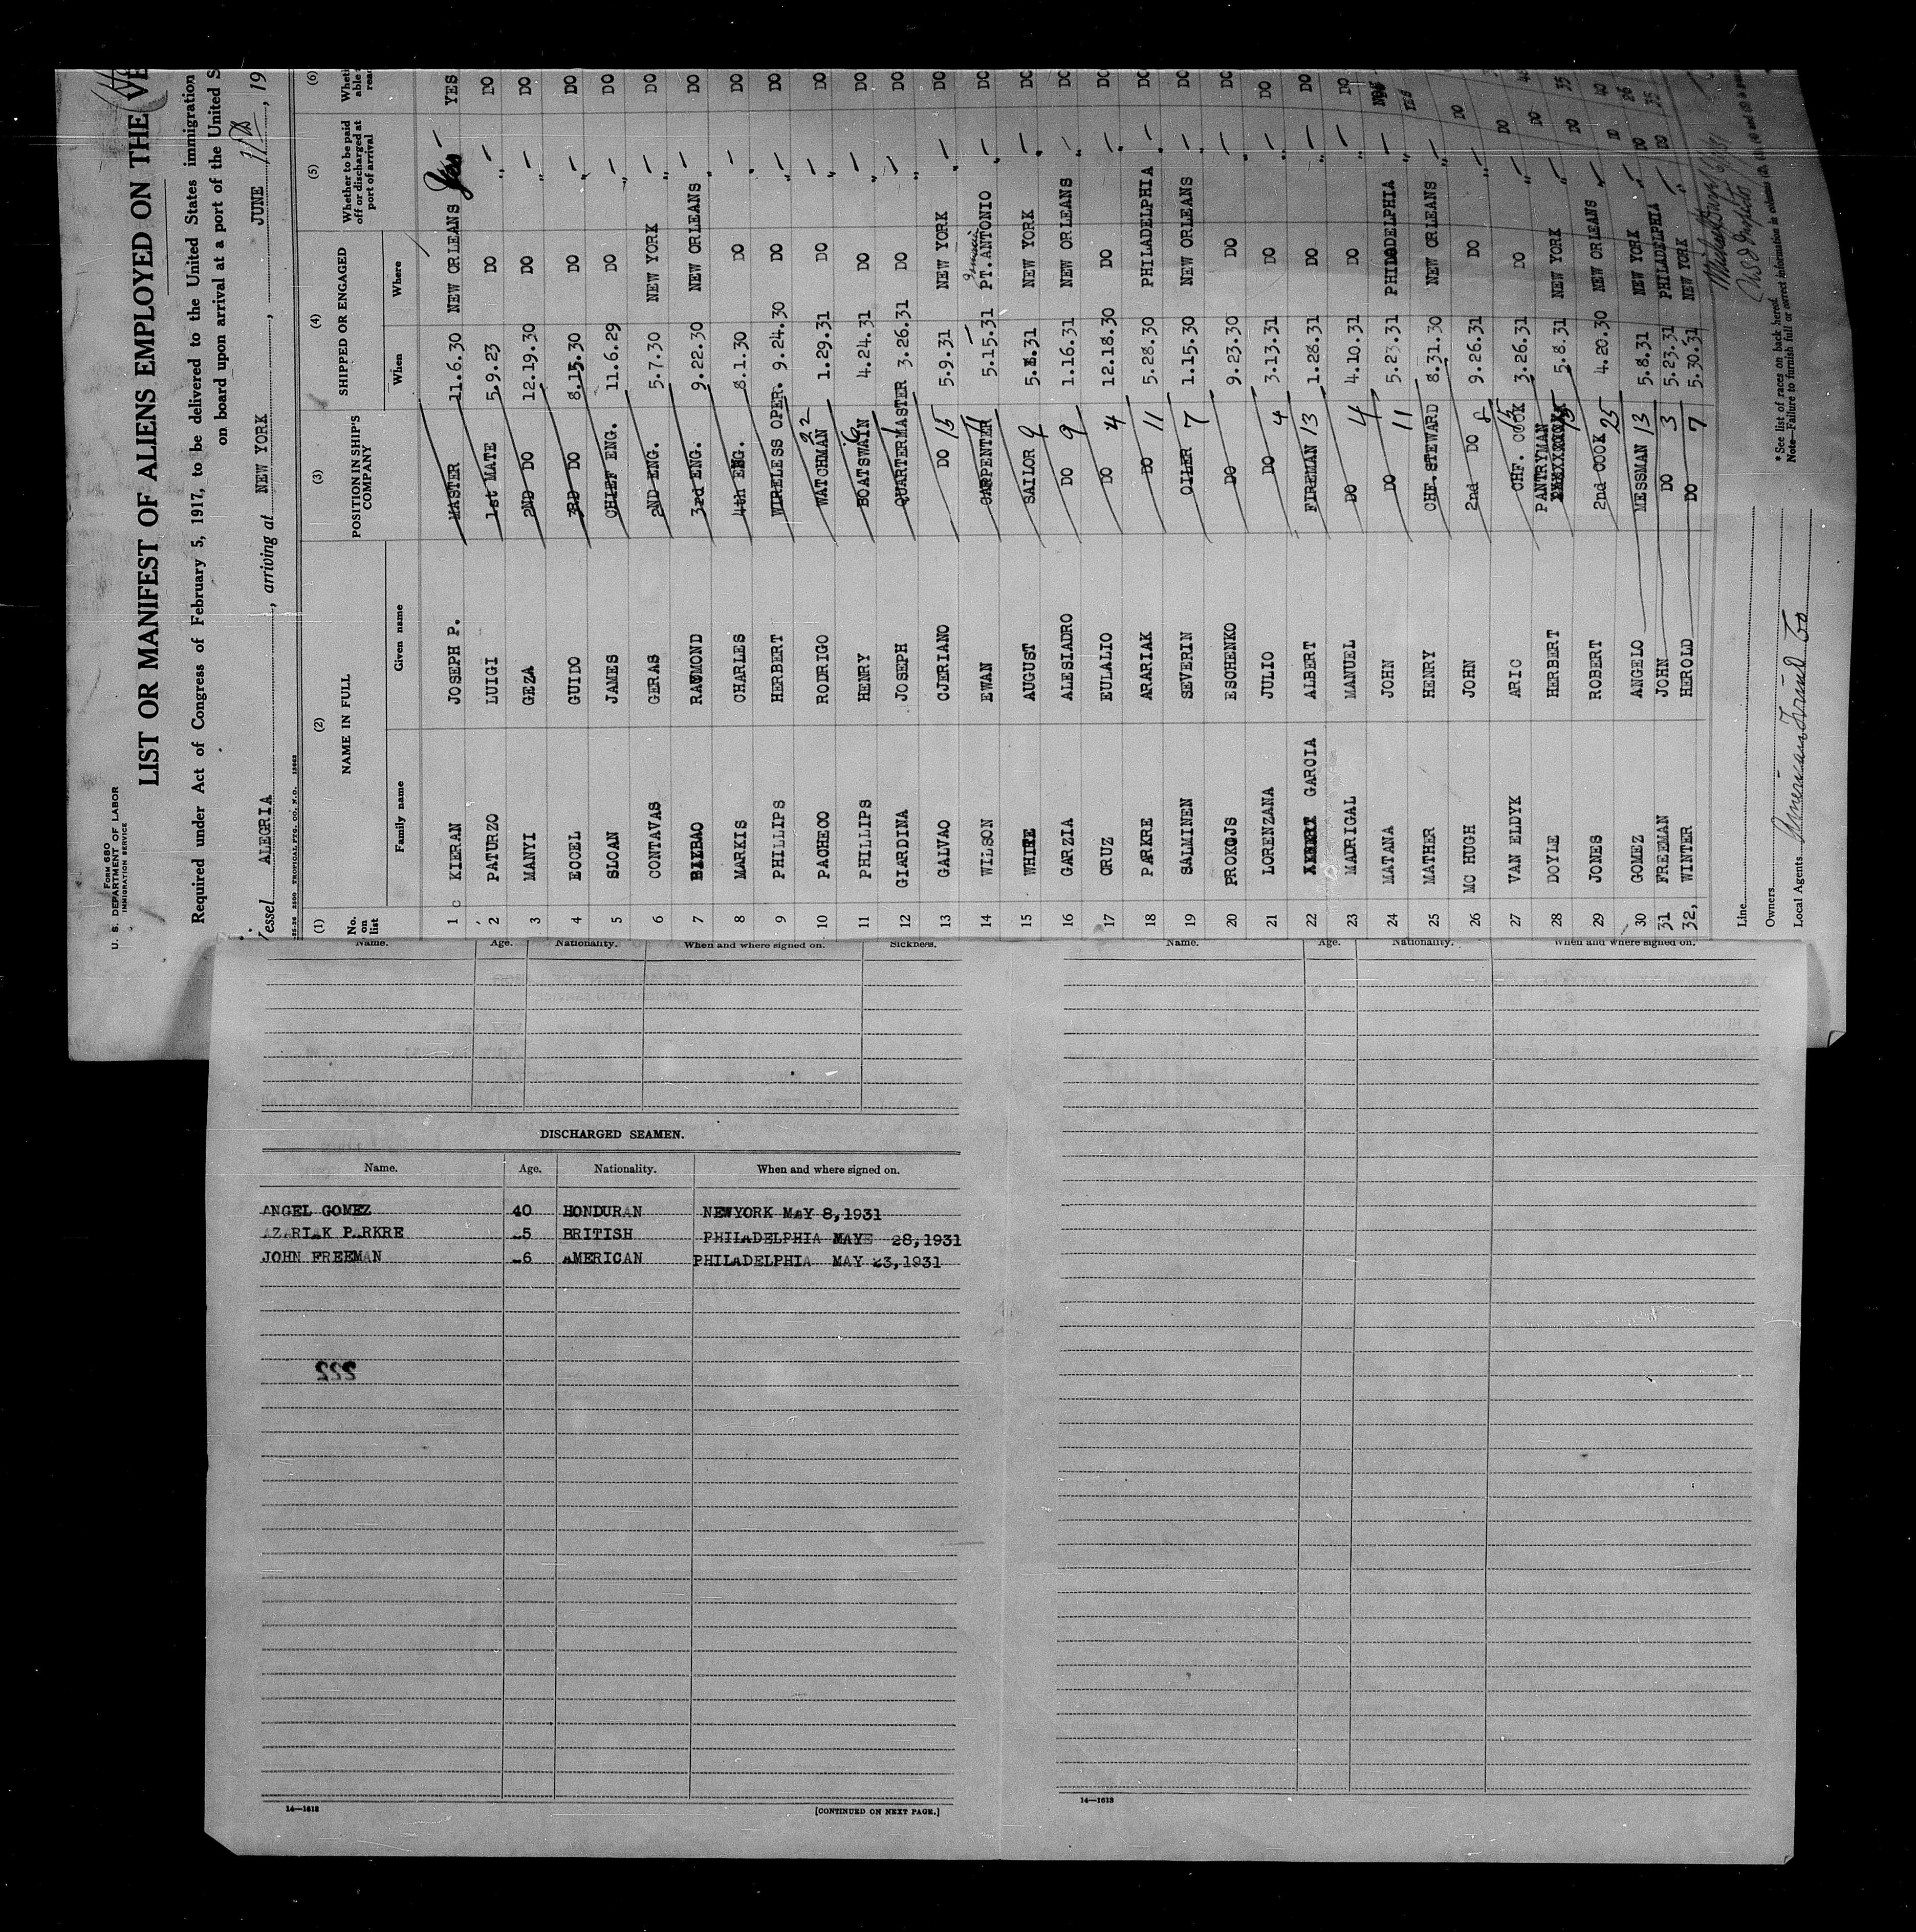 FORM 680
U. S. DEPARTMENT OF LABOR
IMMIGRATION SERVICE
LIST OR MANIFEST OF ALIENS EMPLOYED ON THE VE
Required under Act of Congress of February 5, 1917, to be delivered to the United States immigration
on board upon arrival at a port of the United S
essel ALEGRIA , arriving at NEW YORK , JUNE 11th , 19
TROPICAL PTG. CO., N.O.
(1) (2) (3) (4) (5) (6)
No. on list NAME IN FULL POSITION IN SHIP'S COMPANY SHIPPED OR ENGAGED Whether to be paid off or discharged at port of arrival
Family name Given name When Where
1 KIERAN JOSEPH P. MASTER 11.6.30 NEW ORLEANS YES
2 PATURZO LUIGI 1st MATE 5.9.23 DO " DO
3 MANYI GEZA 2ND DO 12.19.30 DO " DO
4 ECCEL GUIDO 3RD DO 8.15.30 DO " DO
5 SLOAN JAMES CHIEF ENG. 11.6.29 DO " DO
6 CONTAVAS GERAS 2ND ENG. 5.7.30 NEW YORK " DO
7 BILBAO RAYMOND 3rd ENG. 9.22.30 NEW ORLEANS " DO
8 MARKIS CHARLES 4th ENG. 8.1.30 DO " DO
9 PHILLIPS HERBERT WIRELESS OPER. 9.24.30 DO " DO
10 PACHECO RODRIGO WATCHMAN 22 1.29.31 DO " DO
11 PHILLIPS HENRY BOATSWAIN 6 4.24.31 DO " DO
12 GIARDINA JOSEPH QUARTERMASTER 1 3.26.31 DO " DO
13 GALVAO CJERIANO DO 15 5.9.31 NEW YORK " DO
14 WILSON EWAN CARPENTER 11 5.15.31 PT.ANTONIO " DO
15 WHITE AUGUST SAILOR 9 5.8.31 NEW YORK " DO
16 GARZIA ALESIADRO DO 9 1.16.31 NEW ORLEANS " DO
17 CRUZ EULALIO DO 4 12.18.30 DO " DO
18 PARKRE ARARIAK DO 11 5.28.30 PHILADELPHIA " DO
19 SALMINEN SEVERIN OILER 7 1.15.30 NEW ORLEANS " DO
20 PROKOJS ESCHENKO DO 9.23.30 DO " DO
21 LORENZANA JULIO DO 4 3.13.31 DO " DO
22 GAROIA ALBERT FIREMAN 13 1.28.31 DO " DO
23 MADRIGAL MANUEL DO 4 4.10.31 DO " DO
24 MATANA JOHN DO 11 5.23.31 PHILODELPHIA "
25 MATHER HENRY CHF.STEWARD 8.31.30 NEW ORLEANS "
26 MC HUGH JOHN 2nd DO 8 9.26.31 DO " DO
27 VAN ELDYK ARIC CHF. COOK 15 3.26.31 DO " DO
28 DOYLE HERBERT PANTRYMAN 5.8.31 NEW YORK " DO 35
29 JONES ROBERT 2nd COOK 25 4.20.30 NEW ORLEANS " DO 40
30 GOMEZ ANGELO MESSMAN 13 5.8.31 NEW YORK "
31 FREEMAN JOHN DO 3 5.23.31 PHILADELPHIA " DO 26
32, WINTER HEROLD DO 7 5.30.31 NEW YORK " DO 35
Line
Owners
Local Agents American Fruit Co
* See list of races on back hereof
Note—Failure to furnish full or correct information in columns
Name. Age. Nationality. When and where signed on. Sickness.
Name. Age. Nationality. When and where signed on.
DISCHARGED SEAMEN.
Name. Age. Nationality. When and where signed on.
ANGEL GOMEZ 40 HONDURAN NEWYORK MAY 8,1931
AZARIAK PARKRE 25 BRITISH PHILADELPHIA MAYE 28,1931
JOHN FREEMAN 26 AMERICAN PHILADELPHIA MAY 23,1931
222
14—1613
[CONTINUED ON NEXT PAGE.]
14—1613